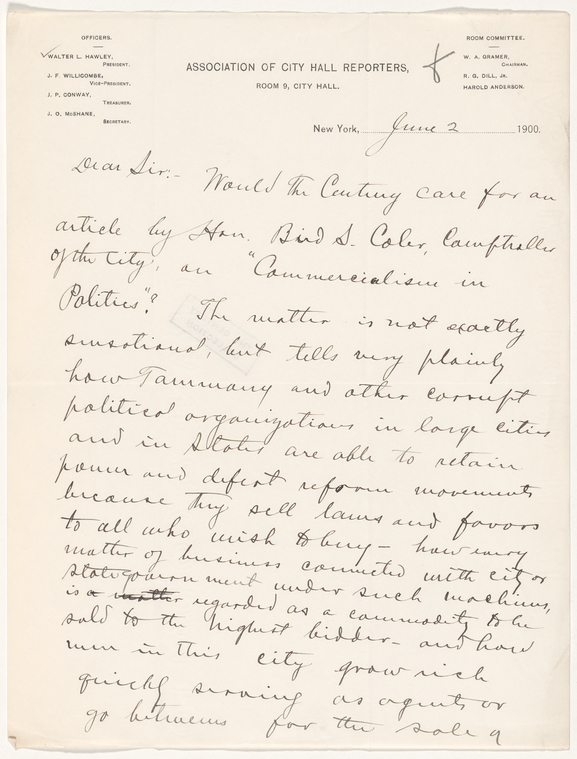 OFFICERS.
WALTER L. HAWLEY,
PRESIDENT.
J. F. WILLICOMBE,
VICE-PRESIDENT.
J. P. CONWAY,
TREASURER.
J. O. McSHANE,
SECRETARY.
ASSOCIATION OF CITY HALL REPORTERS,
ROOM 9, CITY HALL.
ROOM COMMITTEE.
W. A. GRAMER,
CHAIRMAN.
R. G. DILL, JR.
HAROLD ANDERSON.
New York, June 2 1900.
Dear Sir:- Would The Century care for an
article by Hon. Bird S. Coler, Comptroller
of the City, on "Commercialism in
Politics"? The matter is not exactly
sensational, but tells very plainly
how Tammany and other corrupt
political organizations in large cities
and in States are able to retain
power and defeat reform movements
because they sell laws and favors
to all who wish to buy - how every
matter of business connected with city or
state government under such machines,
is a matter regarded as a commodity to be
sold to the highest bidder - and how
men in this city grow rich
quickly serving as agents or
go betweens for the sale of